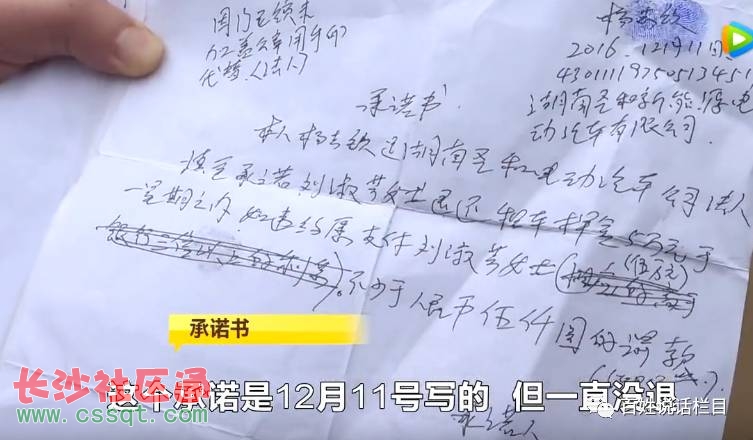 加盖公章用手印
代替(法人)
2016.12月11日
湖南圣和新能源电
动汽车有限公司.
承诺书
本人杨志钦是湖南圣和电动汽车公司法人
承诺刘淑芳女士退还租车押金5万元于
一星期之内,如违约愿支付刘淑芳女士(伍万元)
不少于人民币伍仟圆的
承诺人
承诺书
这个承诺是12月11号写的 但一直没退
长沙社区通
www.cssqt.com
百姓说话栏目